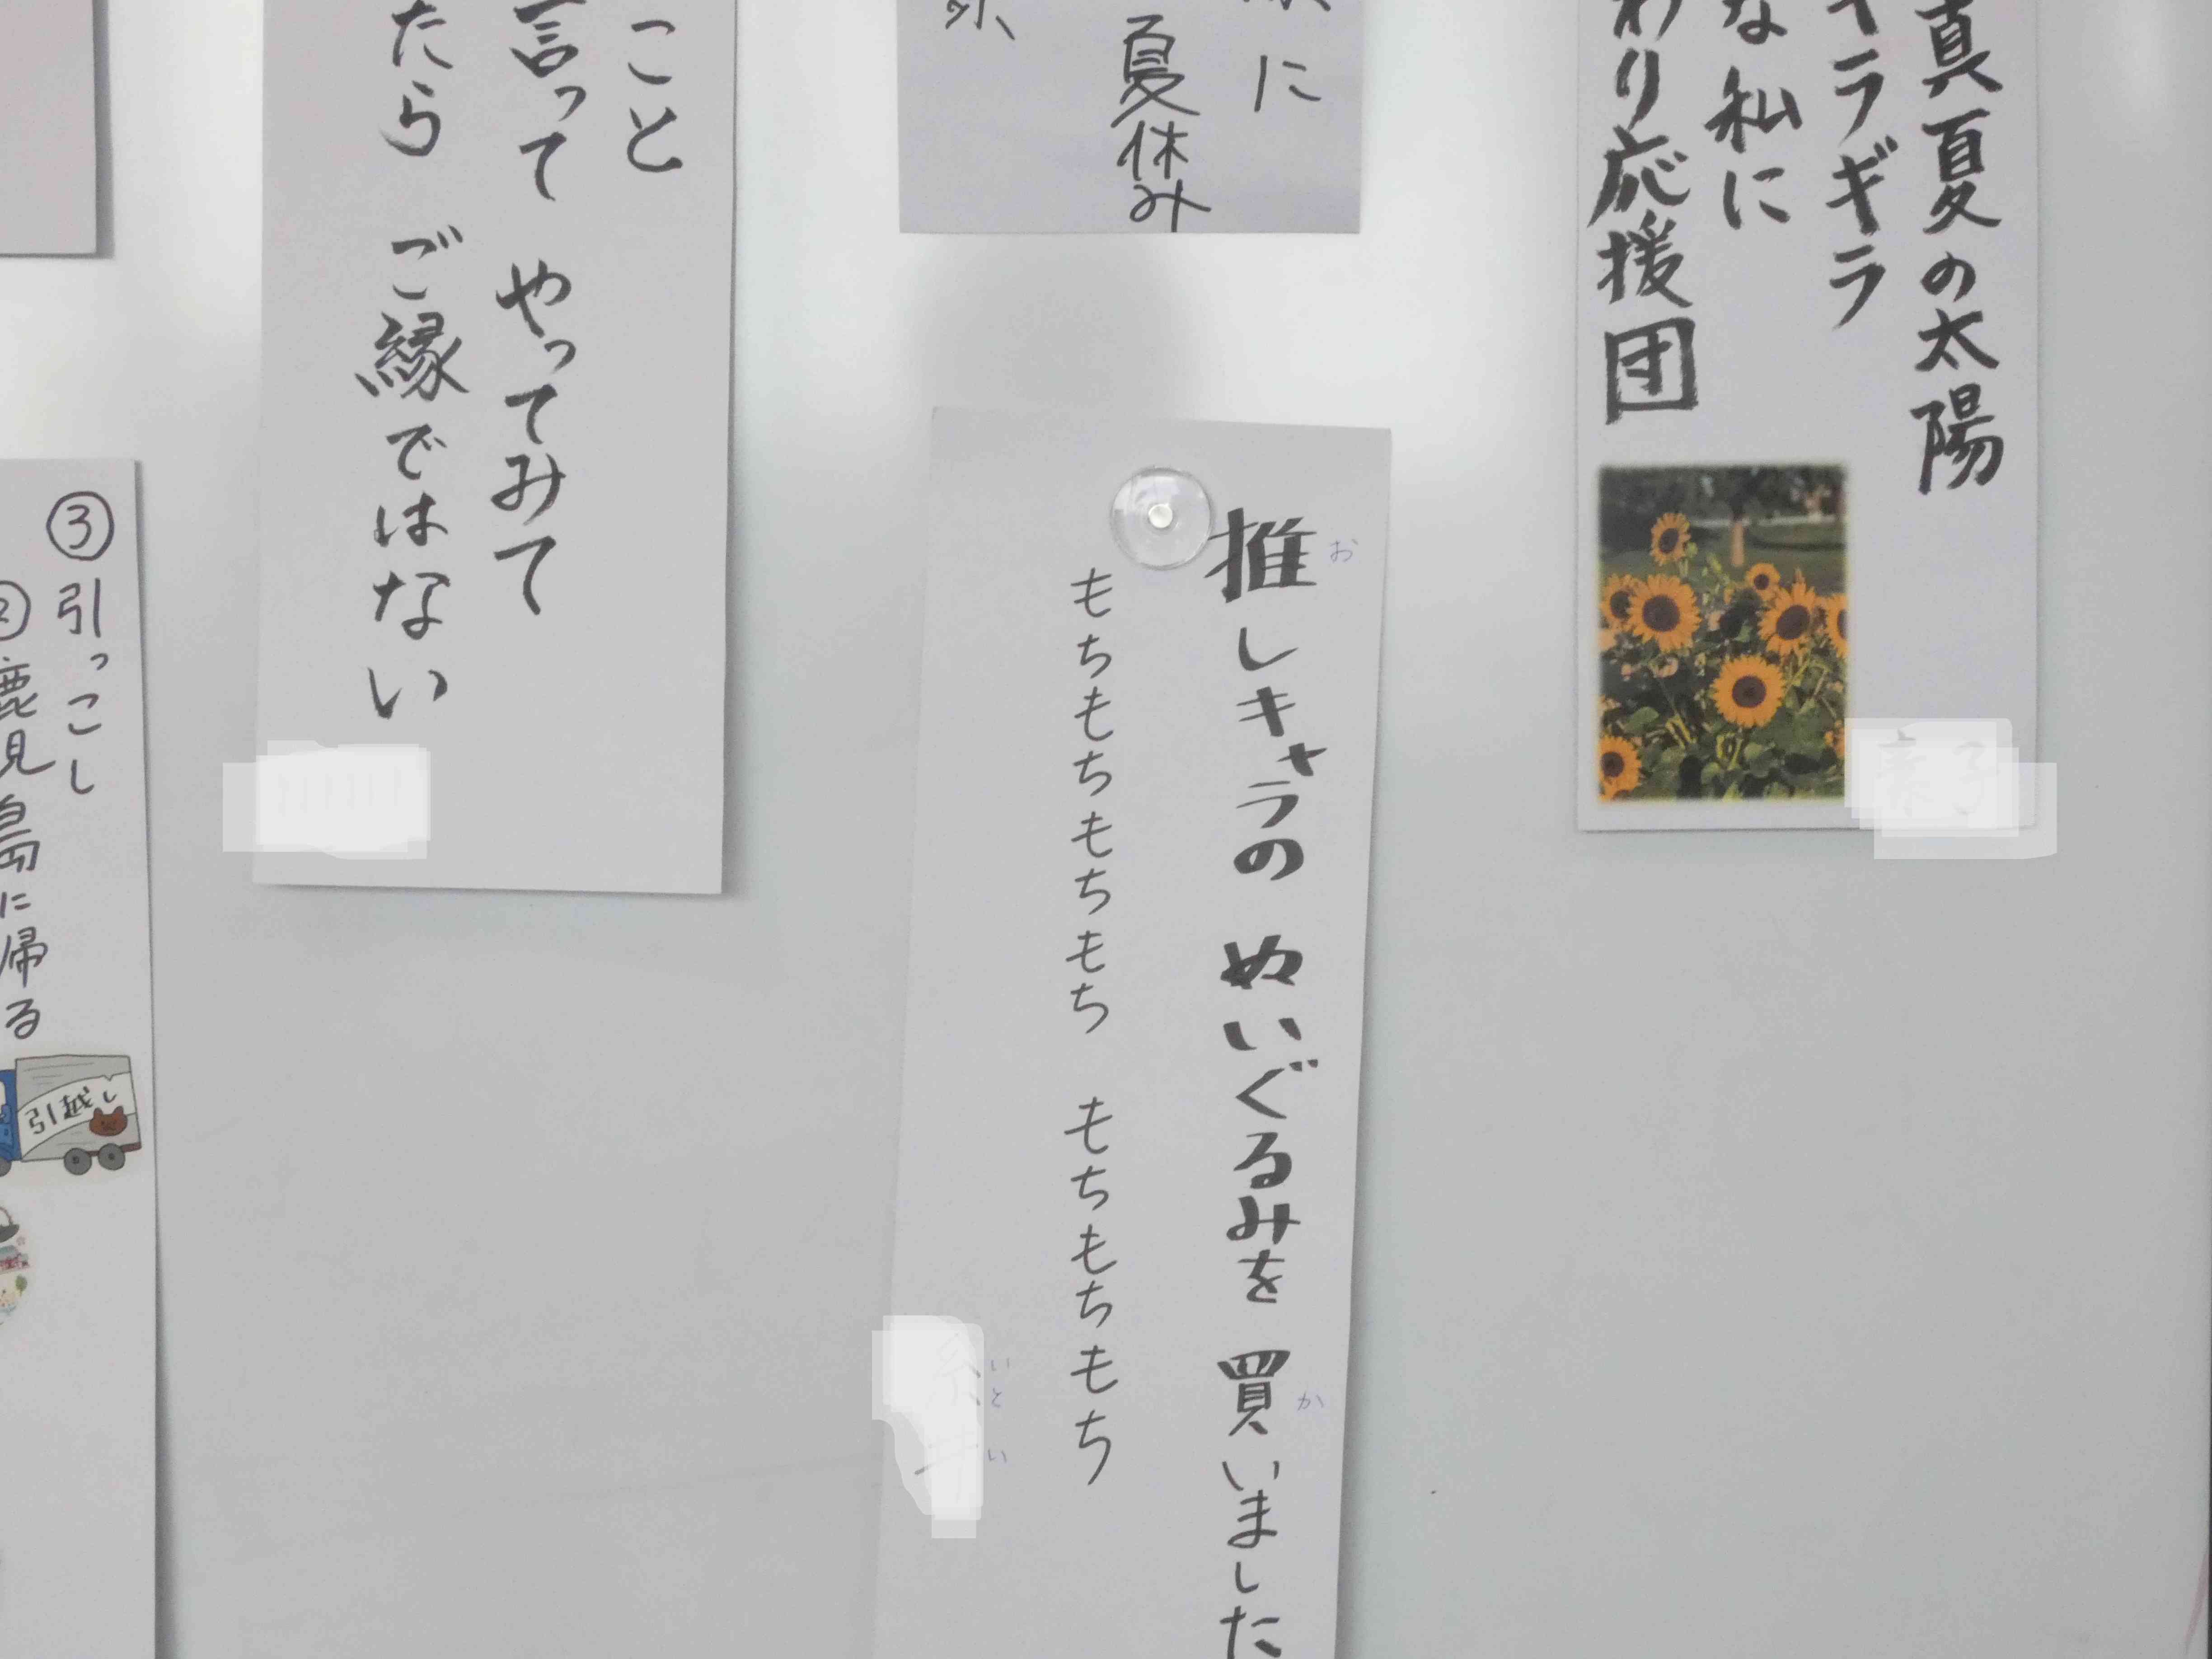 真夏の太陽
ギラギラ
な私に
わり応援団
に
夏休み
推しキャラの ぬいぐるみを 買いました
お
か
もちもちもちもち もちもちもち
いとい
こと
言って やってみて
たら ご縁ではない
③引っこし
②鹿児島に帰る
引越し